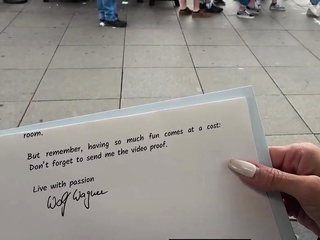 room.
But remember, having so much fun comes at a cost:
Don't forget to send me the video proof.
Live with passion
Wolf Wagner